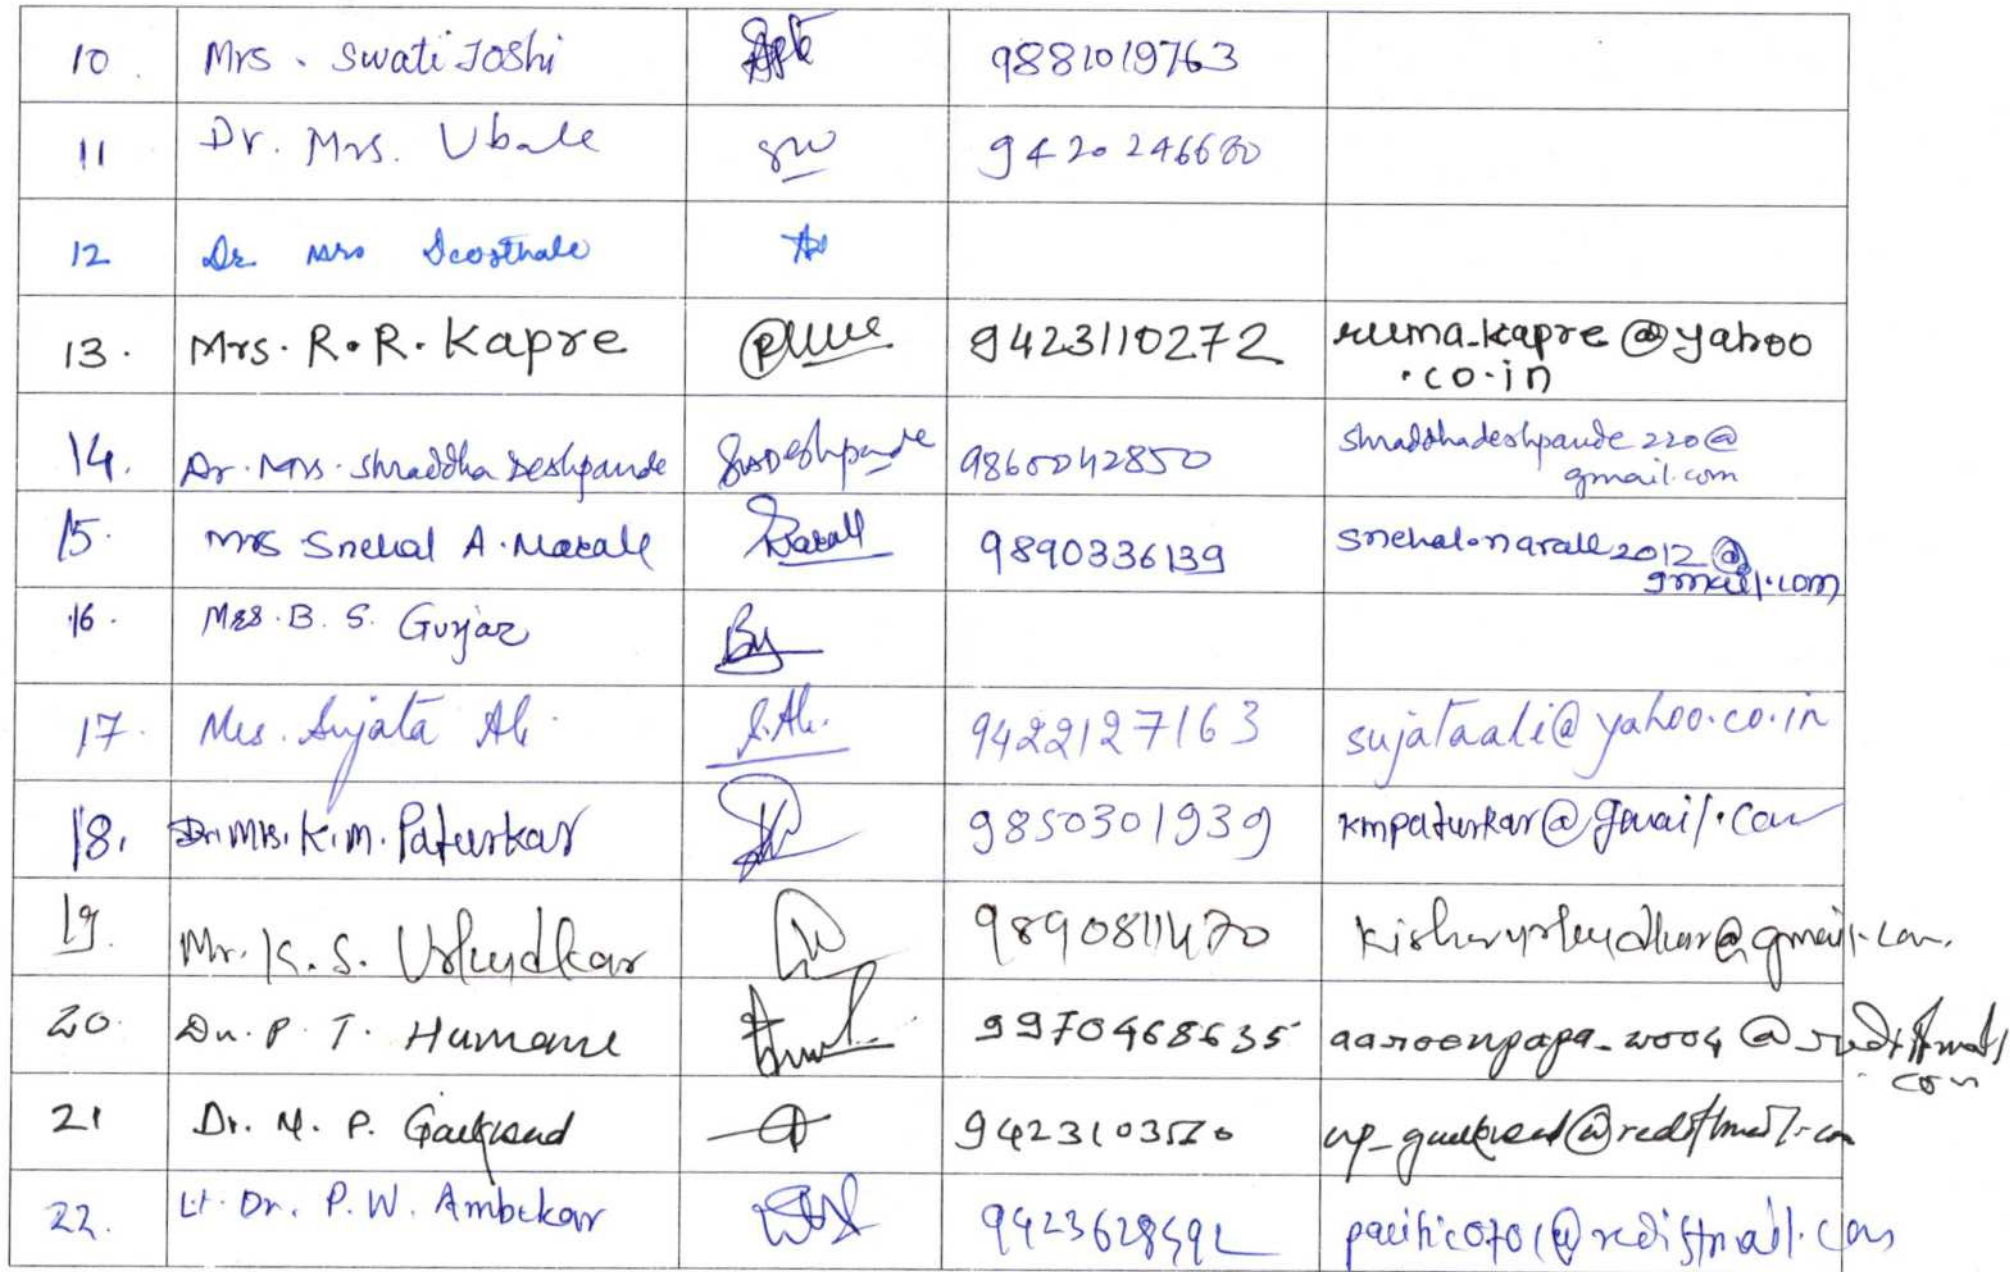 10. Mrs. Swati Joshi 9881019763
11 Dr. Mrs. Ubale 9420246680
12 Dr Mrs Deosthale
13. Mrs. R. R. Kapre 9423110272 ruma_kapre@yahoo
.co.in
14. Dr. Mrs. Shraddha Deshpande Deshpande 9860042850 shraddhadeshpande220@
gmail.com
15. Mrs Snehal A. Marall 9890336139 snehal.narall2012@
gmail.com
16. Mrs. B. S. Gurjar
17. Mrs. Sujata Ali S.Ali. 9422127163 sujataali@yahoo.co.in
18. Dr. Mrs. K. M. Paturkar 9850301939 kmpaturkar@gmail.com
19. Mr. K. S. 9890811470
20. Dr. P. T. Humane 9970468635 aaroenpapa_2004@rediffmail
.com
21 Dr. M. P. Gaikwad
22. Lt. Dr. P. W. Ambekar pacific0701@rediffmail.com